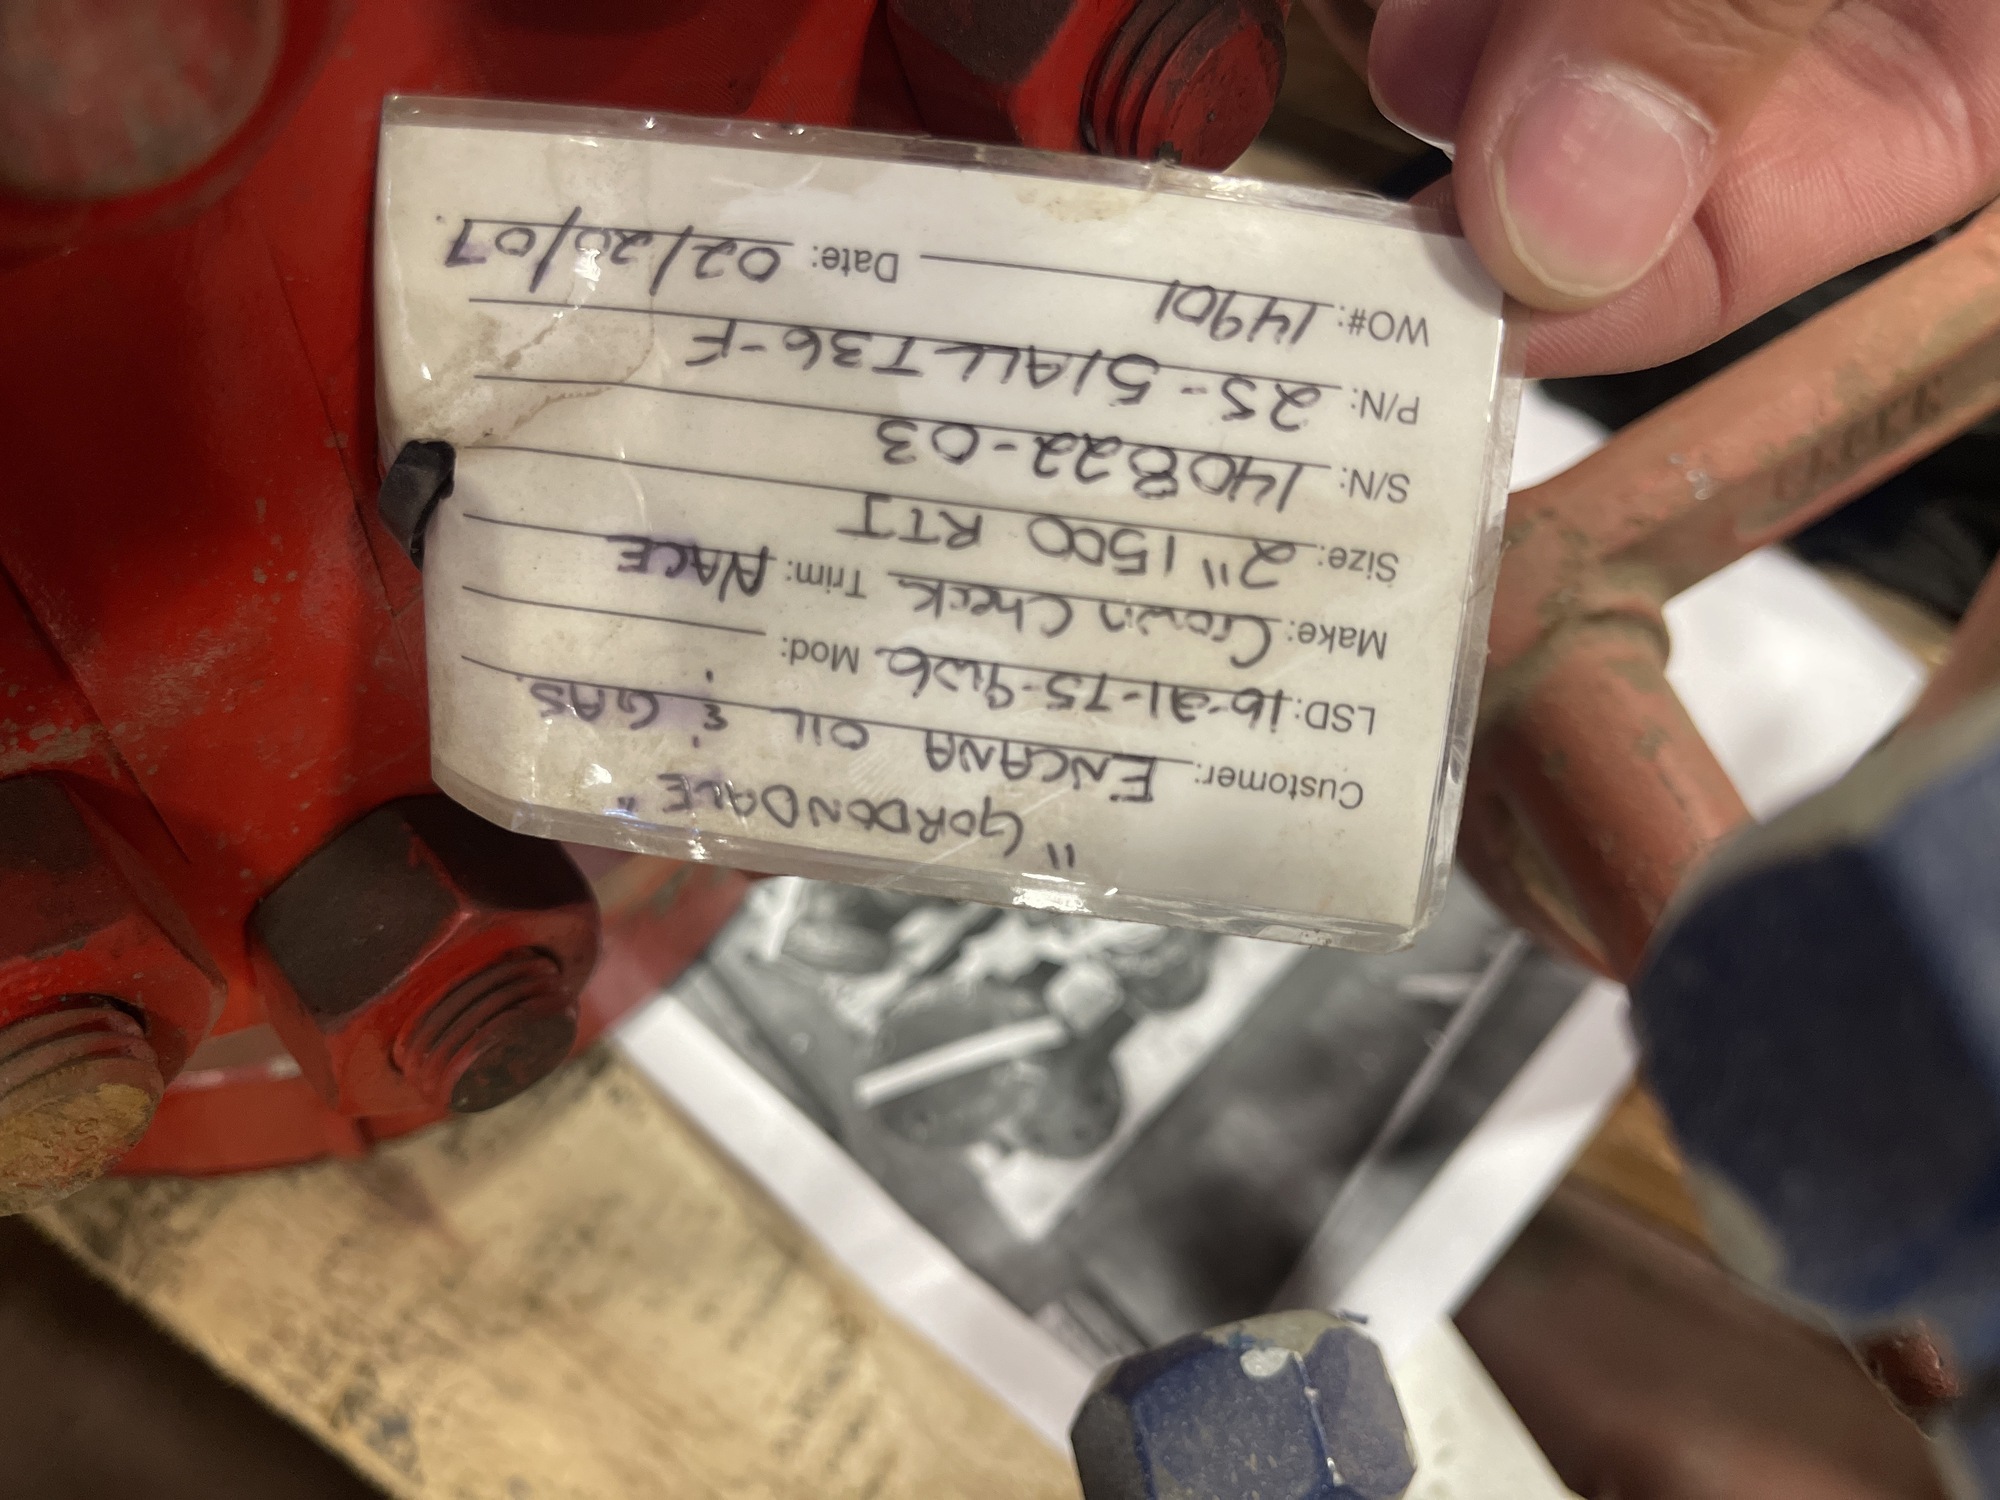 "GORDONDALE"
Customer: ENCANA OIL & GAS
LSD: 16-21-75-9W6 Mod:
Make: Crown Check Trim: NACE
Size: 2" 1500 RTJ
S/N: 140822-03
P/N: 25-51ALLT36-F
WO#: 14901 Date: 02/20/07